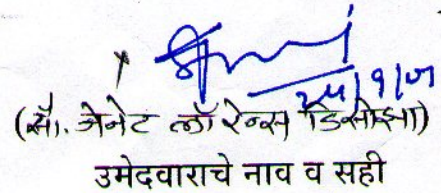 (सौ. जेनेट लॉरेन्स डिसोझा)
उमेदवाराचे नाव व सही